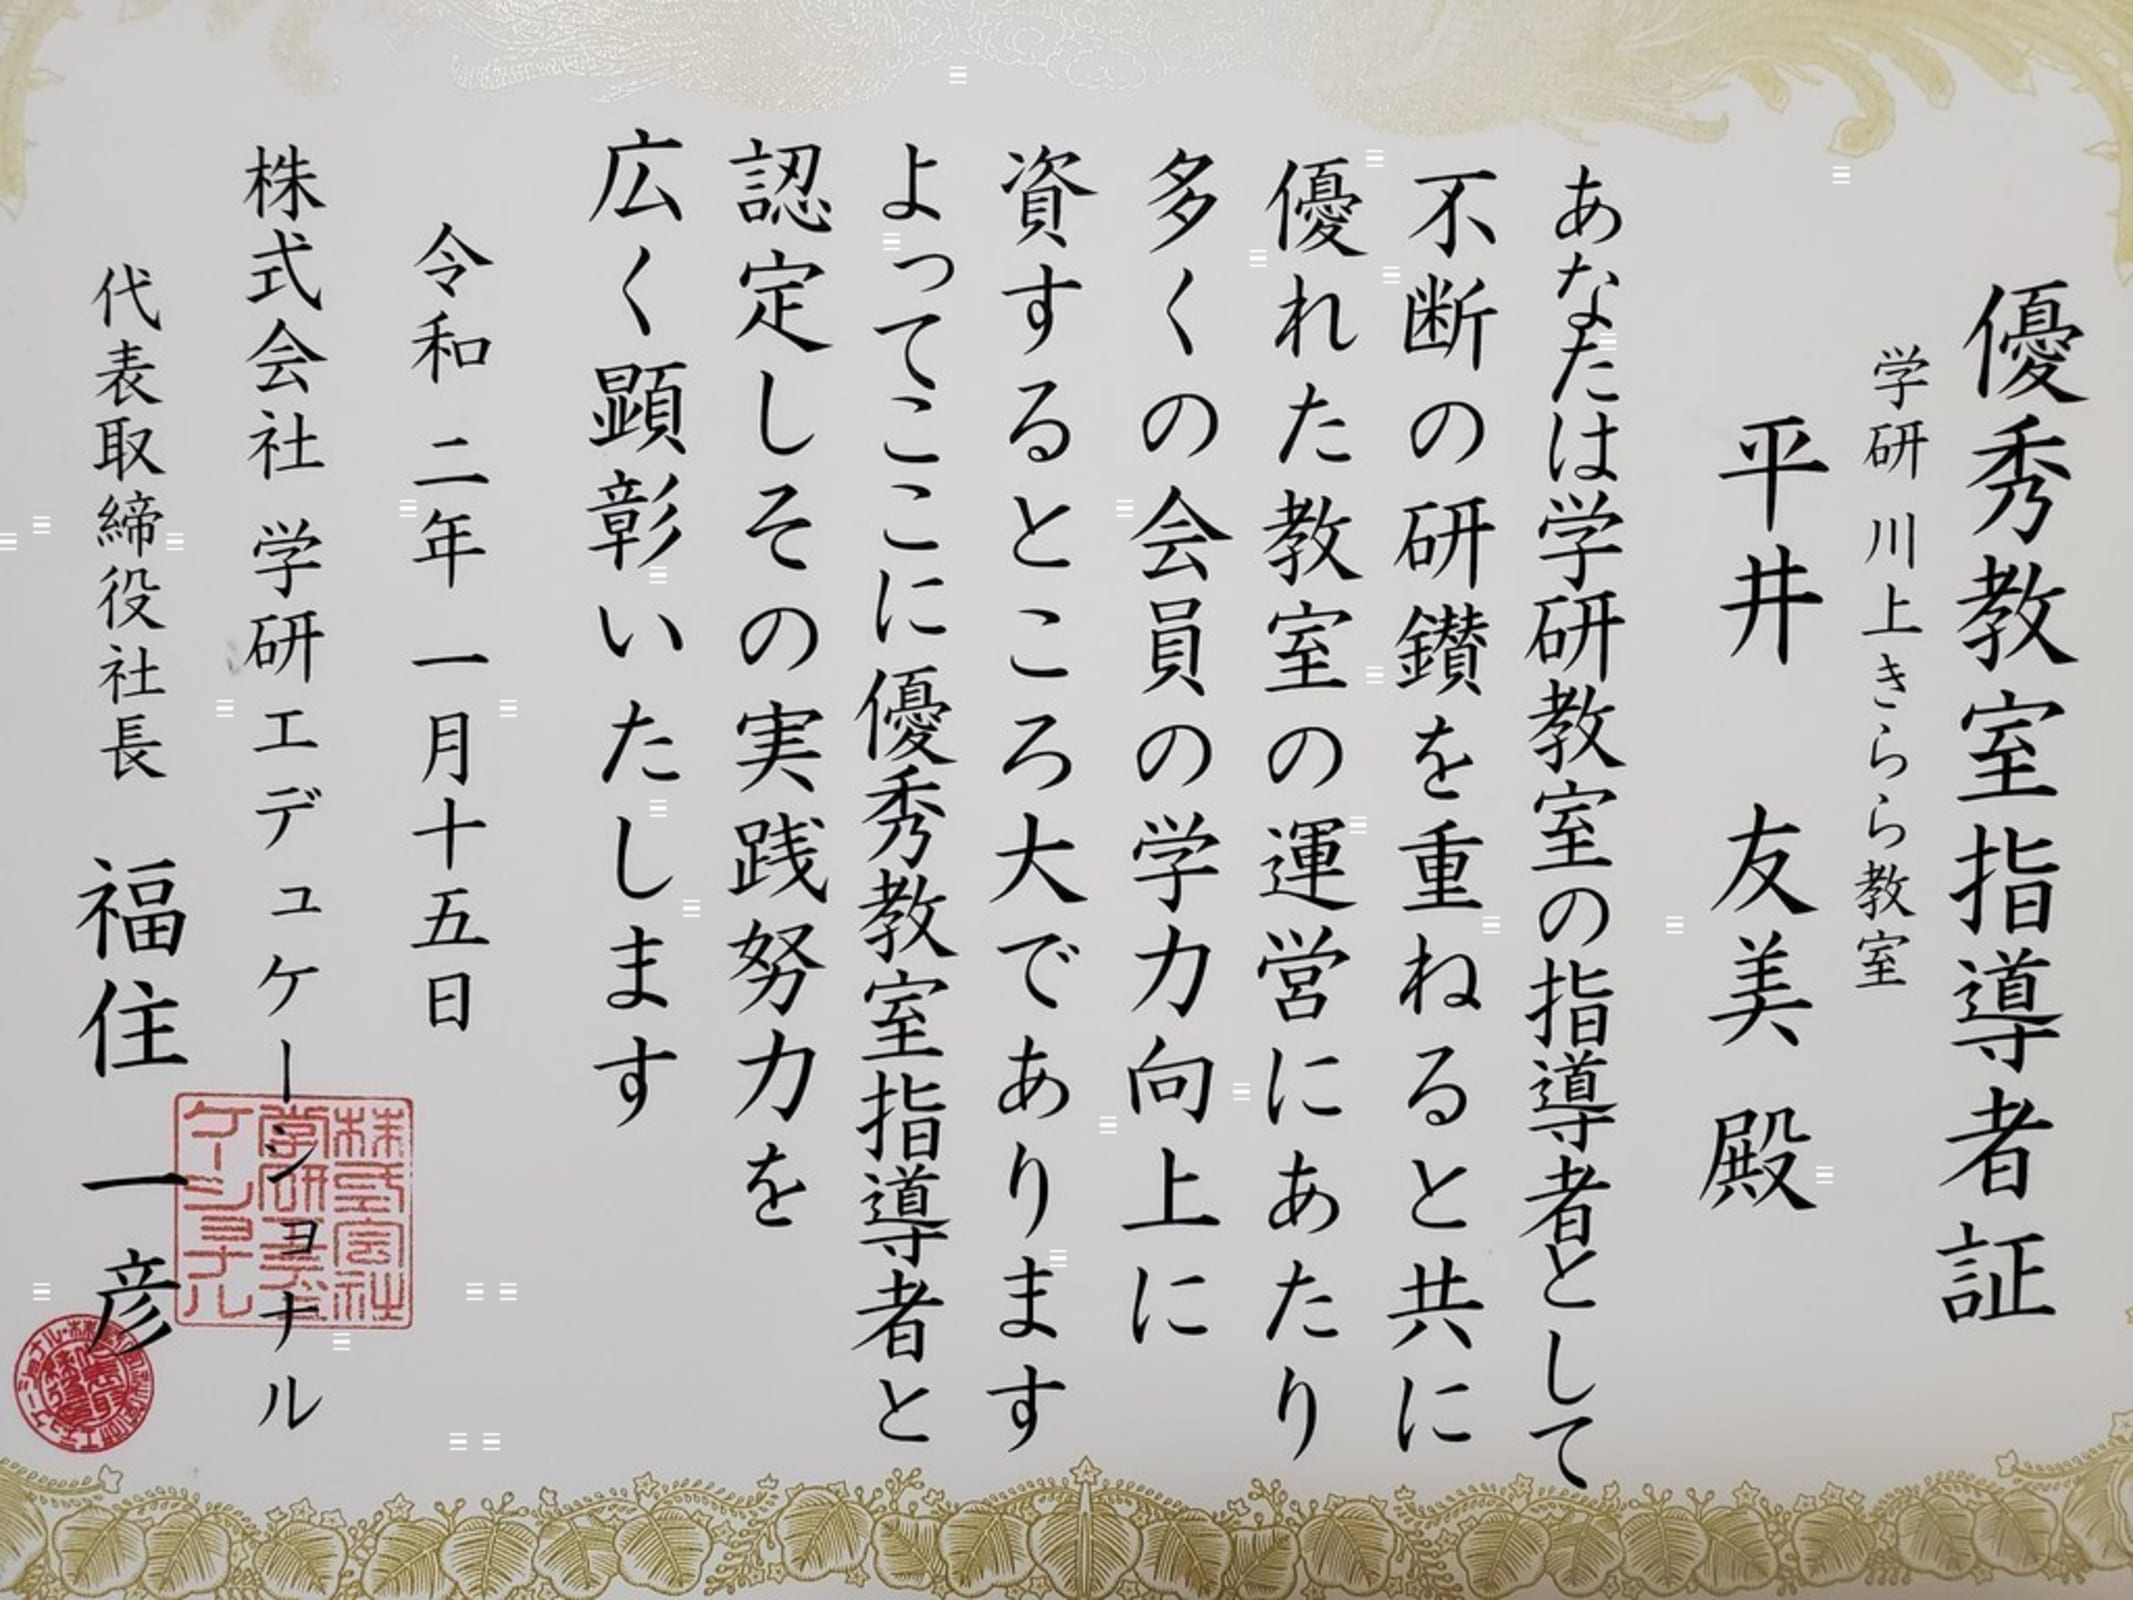 優秀教室指導者証
学研 川上きらら教室
平井 友美 殿
あなたは学研教室の指導者として
不断の研鑚を重ねると共に
優れた教室の運営にあたり
多くの会員の学力向上に
資するところ大であります
よってここに優秀教室指導者と
認定しその実践努力を
広く顕彰いたします
令和二年一月十五日
株式会社 学研エデュケーショナル
代表取締役社長 福住 一彦